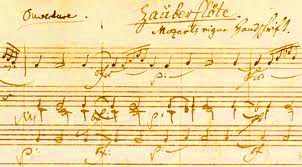 Ouverture.
Zauberflöte.
Mozarts eigne Handschrift.
p: p: p: